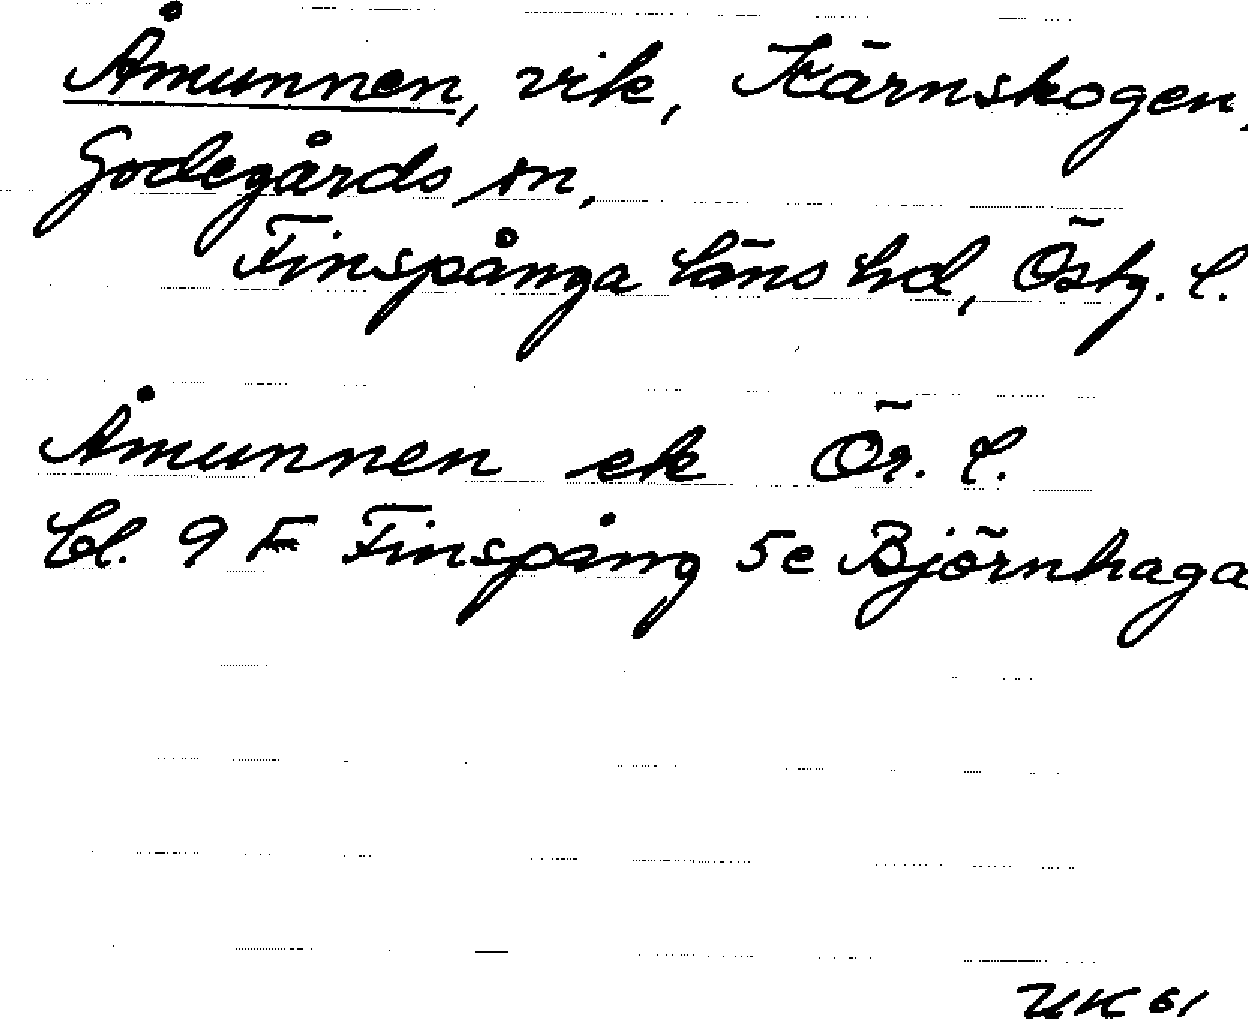 Åmunnen, vik, Kärnskogen,
Godegårds sn,
Finspånga läns hd, Östg. l.
Åmunnen ek Ör. l.
Bl. 9 F Finspång 5e Björnhaga
UK 61